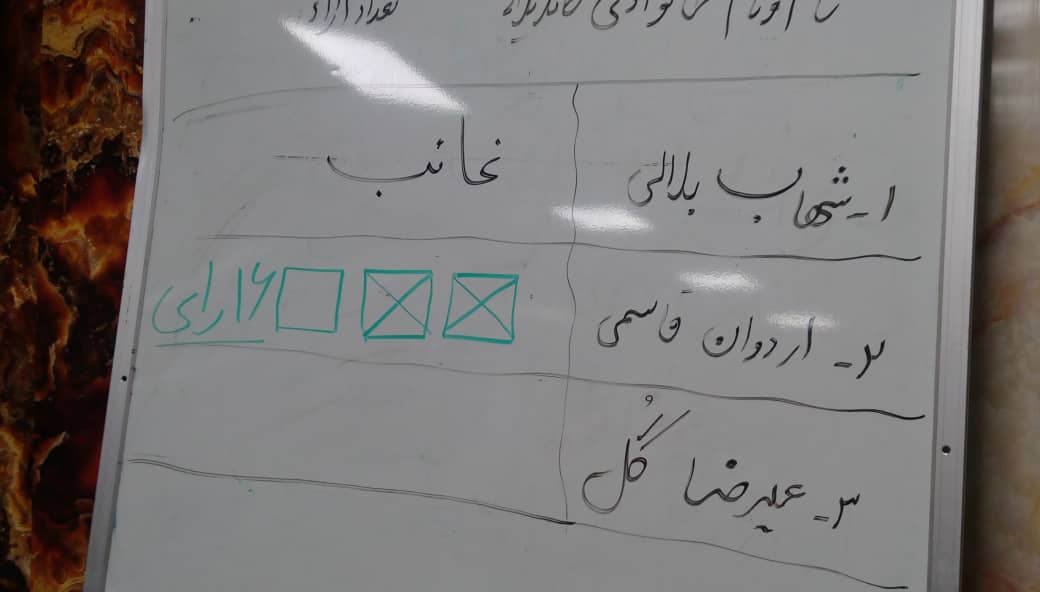 نام و نام خانوادگی کاندیدا تعداد آراء
۱- شهاب بلالی غائب
۲- اردوان قاسمی ۱۶ رای
۳- علیرضا گل